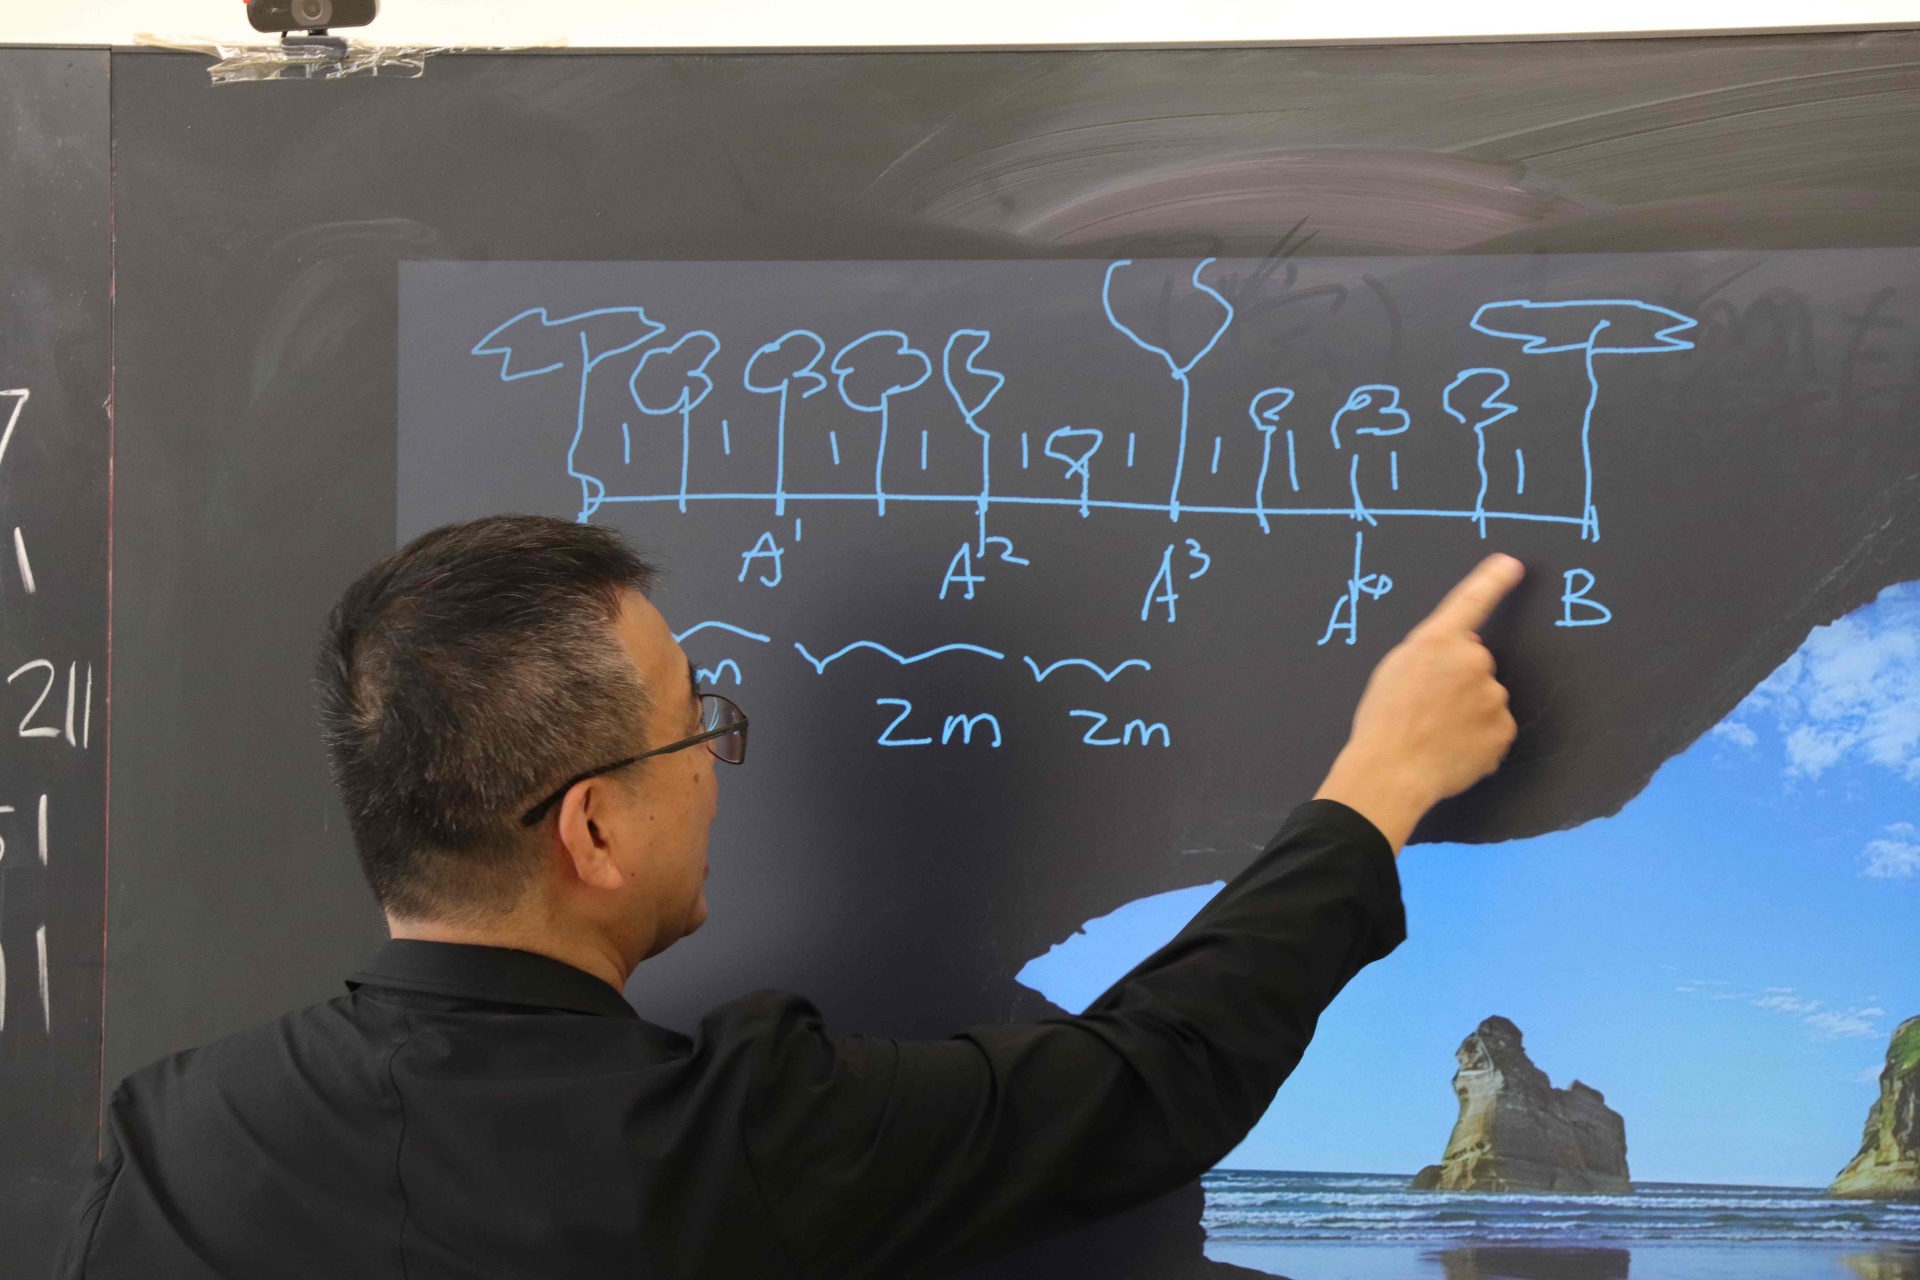 1 1 1 1 1 1 1 1 1 1
A¹ A² A³ A⁴ B
m 2m 2m
7
1
211
51
1